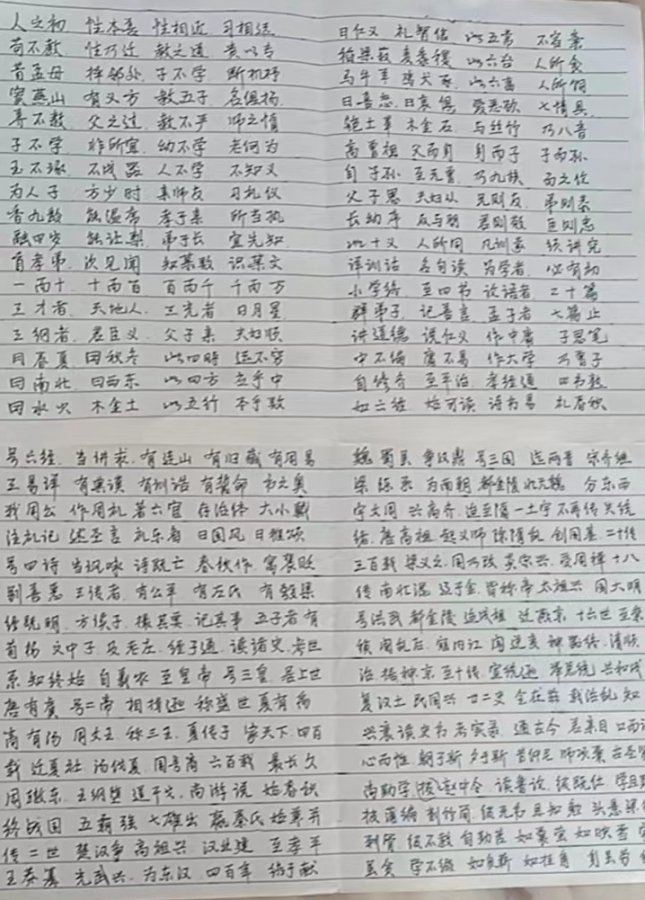 人之初 性本善 性相近 习相远
苟不教 性乃迁 教之道 贵以专
昔孟母 择邻处 子不学 断机杼
窦燕山 有义方 教五子 名俱扬
养不教 父之过 教不严 师之惰
子不学 非所宜 幼不学 老何为
玉不琢 不成器 人不学 不知义
为人子 方少时 亲师友 习礼仪
香九龄 能温席 孝于亲 所当执
融四岁 能让梨 弟于长 宜先知
首孝弟 次见闻 知某数 识某文
一而十 十而百 百而千 千而万
三才者 天地人 三光者 日月星
三纲者 君臣义 父子亲 夫妇顺
曰春夏 曰秋冬 此四时 运不穷
曰南北 曰西东 此四方 应乎中
曰水火 木金土 此五行 本乎数
曰仁义 礼智信 此五常 不容紊
稻粱菽 麦黍稷 此六谷 人所食
马牛羊 鸡犬豕 此六畜 人所饲
曰喜怒 曰哀惧 爱恶欲 七情具
匏土革 木金石 与丝竹 乃八音
高曾祖 父而身 身而子 子而孙
自子孙 至元曾 乃九族 而之伦
父子恩 夫妇从 兄则友 弟则恭
长幼序 友与朋 君则敬 臣则忠
此十义 人所同 凡训蒙 须讲究
详训诂 名句读 为学者 必有初
小学终 至四书 论语者 二十篇
群弟子 记善言 孟子者 七篇止
讲道德 说仁义 作中庸 子思笔
中不偏 庸不易 作大学 乃曾子
自修齐 至平治 孝经通 四书熟
如六经 始可读 诗书易 礼春秋
号六经 当讲求 有连山 有归藏 有周易
三易详 有典谟 有训诰 有誓命 书之奥
我周公 作周礼 著六官 存治体 大小戴
注礼记 述圣言 礼乐备 曰国风 曰雅颂
号四诗 当讽咏 诗既亡 春秋作 寓褒贬
别善恶 三传者 有公羊 有左氏 有穀梁
经既明 方读子 撮其要 记其事 五子者 有
荀扬 文中子 及老庄 经子通 读诸史 考世
系 知终始 自羲农 至皇帝 号三皇 居上世
唐有虞 号二帝 相揖逊 称盛世 夏有禹
商有汤 周文王 称三王 夏传子 家天下 四百
载 迁夏社 汤伐夏 国号商 六百载
周辙东 王纲坠 逞干戈 尚游说 始春秋
终战国 五霸强 七雄出 嬴秦氏 始兼并
传二世 楚汉争 高祖兴 汉业建 至孝平
王莽篡 光武兴 为东汉 四百年 终于献
魏蜀吴 争汉鼎 号三国 迄两晋 宋齐继
梁陈承 为南朝 都金陵 北元魏 分东西
宇文周 兴高齐 迨至隋 一土宇 不再传 失统
绪 唐高祖 起义师 除隋乱 创国基 二十传
三百载 梁灭之 国乃改 炎宋兴 受周禅 十八
传 南北混 辽于金 皆称帝 太祖兴 国大明
号洪武 都金陵 迨成祖 迁燕京 十六世 至崇
祯 阉乱后 寇内江 闯逆变 神器终 清顺
治 据神京 至十传 宣统逊 举总统 共和成
复汉土 民国兴 廿二史 全在兹 载治乱 知
兴衰 读史书 考实录 通古今 若亲目 口而诵
心而惟 朝于斯 夕于斯 昔仲尼 师项橐 古圣贤
尚勤学 赵中令 读鲁论 彼既仕 学且
披蒲编 削竹简 彼无书 且知勉 头悬梁
刺骨 彼不教 自勤苦 如囊萤 如映雪
虽贫 学不辍 如负薪 如挂角